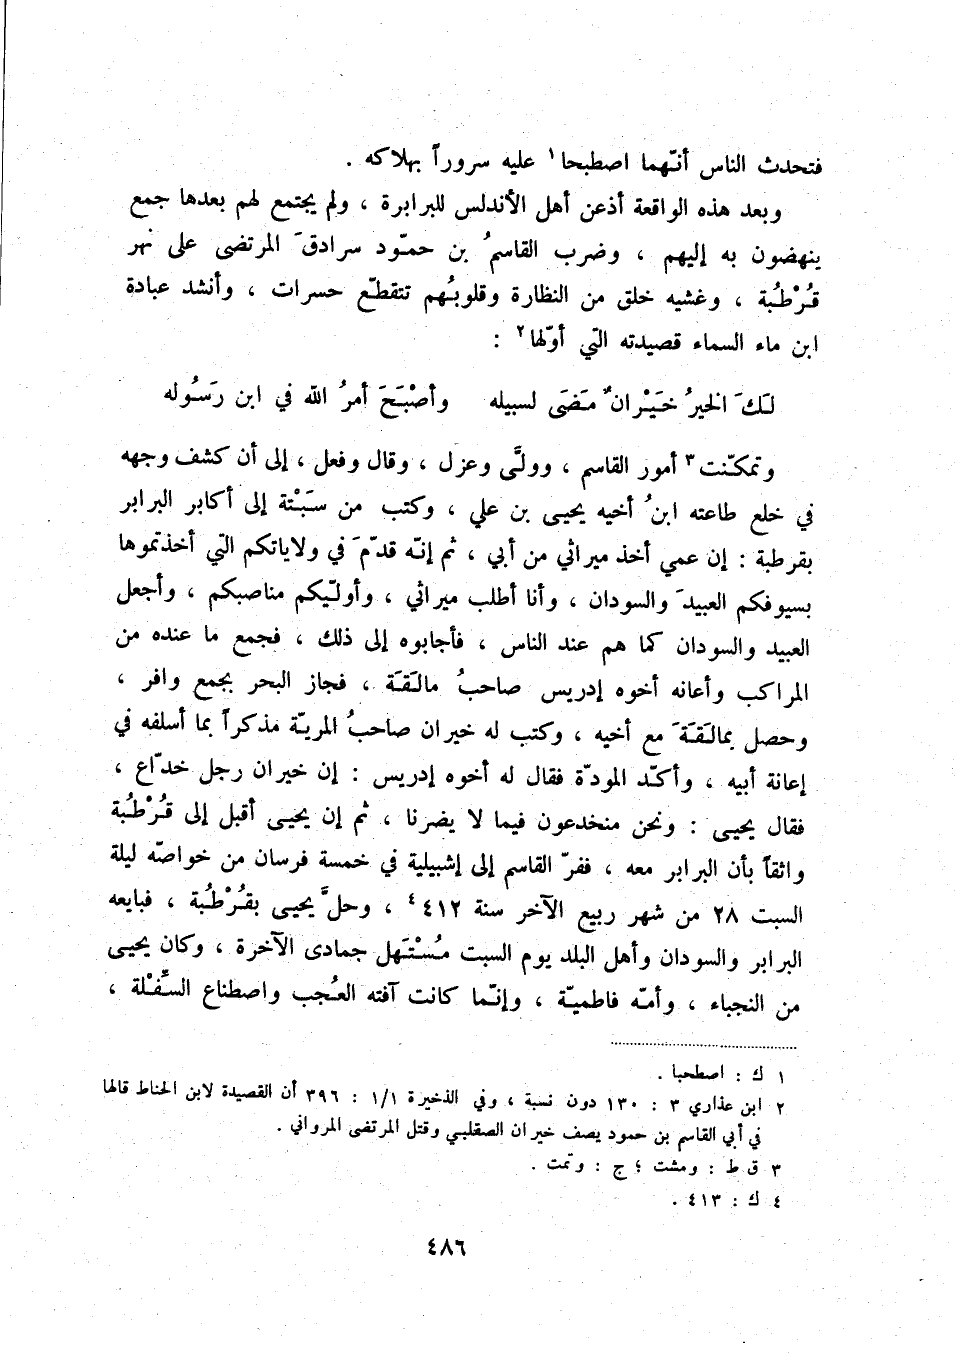 فتحدث الناس أنّهما اصطبحا١ عليه سروراً بهلاكه .
وبعد هذه الواقعة أذعن أهل الأندلس للبرابرة ، ولم يجتمع لهم بعدها جمع
ينهضون به إليهم ، وضرب القاسمُ بن حمّود سرادقَ المرتضى على نهر
قُرْطُبة ، وغشيه خلق من النظارة وقلوبُهم تتقطّع حسرات ، وأنشد عبادة
ابن ماء السماء قصيدته التي أوّلها٢ :
لَكَ الخيرُ خَيْرانٌ مَضَى لسبيله وأصْبَحَ أمرُ الله في ابن رَسُوله
وتمكّنت٣ أمور القاسم ، وولَّى وعزل ، وقال وفعل ، إلى أن كشف وجهه
في خلع طاعته ابنُ أخيه يحيى بن علي ، وكتب من سَبْتة إلى أكابر البرابر
بقرطبة : إن عمي أخذ ميراثي من أبي ، ثم إنّه قدّمَ في ولاياتكم التي أخذتموها
بسيوفكم العبيدَ والسودان ، وأنا أطلب ميراثي ، وأولّيكم مناصبكم ، وأجعل
العبيد والسودان كما هم عند الناس ، فأجابوه إلى ذلك ، فجمع ما عنده من
المراكب وأعانه أخوه إدريس صاحبُ مالَقَة ، فجاز البحر بجمع وافر ،
وحصل بمالَقَةَ مع أخيه ، وكتب له خيران صاحبُ المريّة مذكراً بما أسلفه في
إعانة أبيه ، وأكّد المودّة فقال له أخوه إدريس : إن خيران رجل خدّاع ،
فقال يحيى : ونحن منخدعون فيما لا يضرنا ، ثم إن يحيى أقبل إلى قُرْطُبة
واثقاً بأن البرابر معه ، ففرّ القاسم إلى إشبيلية في خمسة فرسان من خواصّه ليلة
السبت ٢٨ من شهر ربيع الآخر سنة ٤١٢٤ ، وحلَّ يحيى بقُرْطُبة ، فبايعه
البرابر والسودان وأهل البلد يوم السبت مُسْتَهل جمادى الآخرة ، وكان يحيى
من النجباء ، وأمّه فاطميّة ، وإنّما كانت آفته العُجب واصطناع السِّفْلة ،
١ ك : اصطحبا .
٢ ابن عذاري ٣ : ١٣٠ دون نسبة ، وفي الذخيرة ١/١ : ٣٩٦ أن القصيدة لابن الحناط قالها
في أبي القاسم بن حمود يصف خيران الصقلبي وقتل المرتضى المرواني .
٣ ق ط : ومشت ؛ ج : وتمت .
٤ ك : ٤١٣ .
٤٨٦